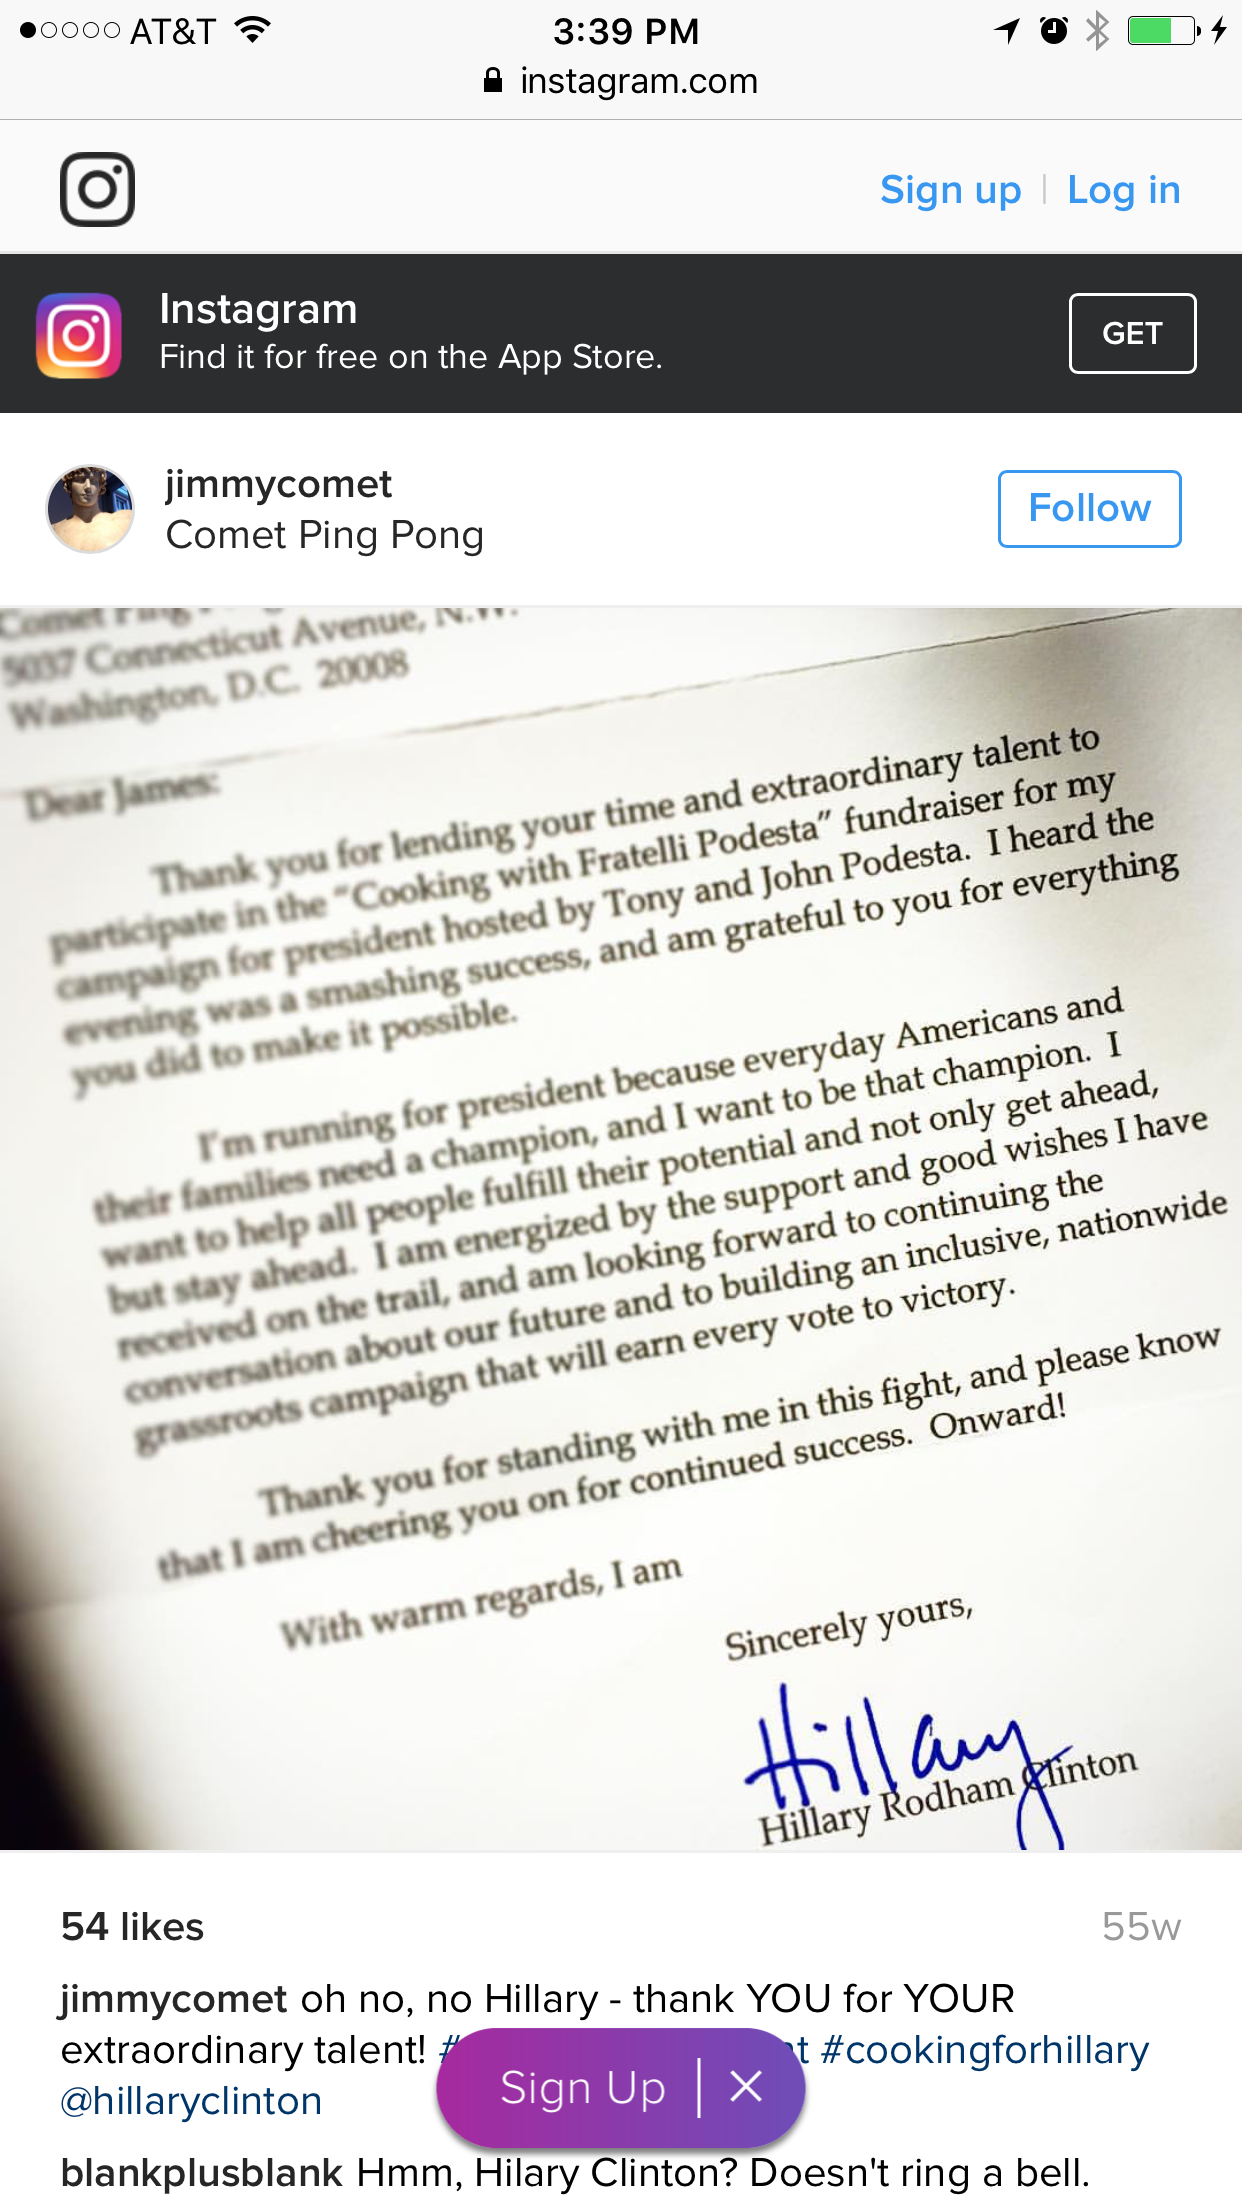 AT&T 3:39 PM
instagram.com
Sign up | Log in
Instagram
Find it for free on the App Store.
GET
jimmycomet
Comet Ping Pong
Follow
Comet Ping
5037 Connecticut Avenue, N.W.
Washington, D.C. 20008
Dear James:
Thank you for lending your time and extraordinary talent to
participate in the "Cooking with Fratelli Podesta" fundraiser for my
campaign for president hosted by Tony and John Podesta. I heard the
evening was a smashing success, and am grateful to you for everything
you did to make it possible.
I'm running for president because everyday Americans and
their families need a champion, and I want to be that champion. I
want to help all people fulfill their potential and not only get ahead,
but stay ahead. I am energized by the support and good wishes I have
received on the trail, and am looking forward to continuing the
conversation about our future and to building an inclusive, nationwide
grassroots campaign that will earn every vote to victory.
Thank you for standing with me in this fight, and please know
that I am cheering you on for continued success. Onward!
With warm regards, I am
Sincerely yours,
Hillary
Hillary Rodham Clinton
54 likes
55w
jimmycomet oh no, no Hillary - thank YOU for YOUR
extraordinary talent! #cookingforhillary
@hillaryclinton
Sign Up | ×
blankplusblank Hmm, Hilary Clinton? Doesn't ring a bell.